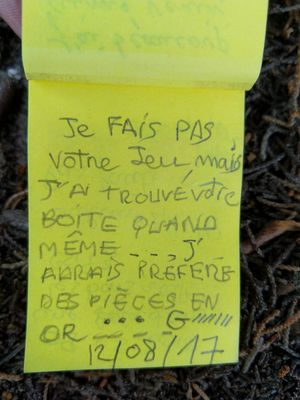 Je FAIS PAS
votre Jeu mais
J'AI TROUVÉ Votre
BOITE QUAND
MÊME ....., J'
AURAIS PRÉFÉRÉ
DES PIÈCES EN
OR ... G"""""
12/08/17